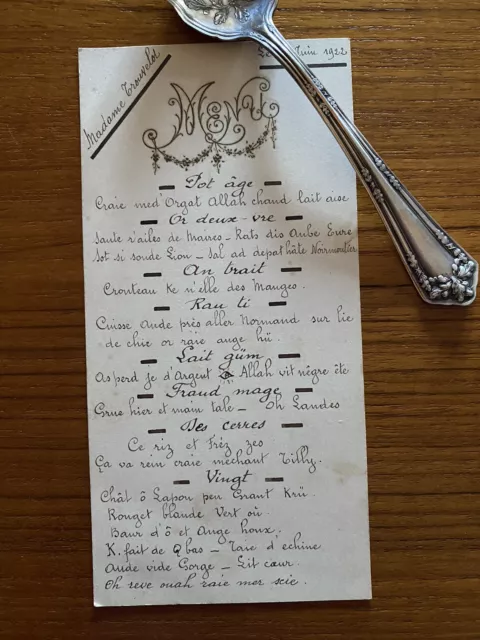 Madame Trouvelot
Juin 1922
Menu
Pot âge
Craie med'Orgat Allah chand lait aise
Or deux-vre
Saute r'ailes de Maires - Rats dis Aube Eure
Sot si sonde Lion - Sal ad depat hâte Noirmoutier
An trait
Cronteau Ke n'elle des Manges.
Rau ti
Cuisse Aude près aller Normand sur lie
de chie or raie auge hü.
Lait güm
Asperd je d'Argent Allah vit nègre ête
Fraud mage
Grue hier et main tale - Oh Landes
Des cerres
Ce riz et Fréz zes
Ça va rein craie mechant Tilly.
Vingt
Chât ô Lapou peu Grant Krü.
Rouget blande Vert où.
Baur d'ô et Ange houx.
K. fait de Q bas - Taie d'echine
Aude vide Gorge - Lit cœur.
Oh reve ouah raie mer scie.